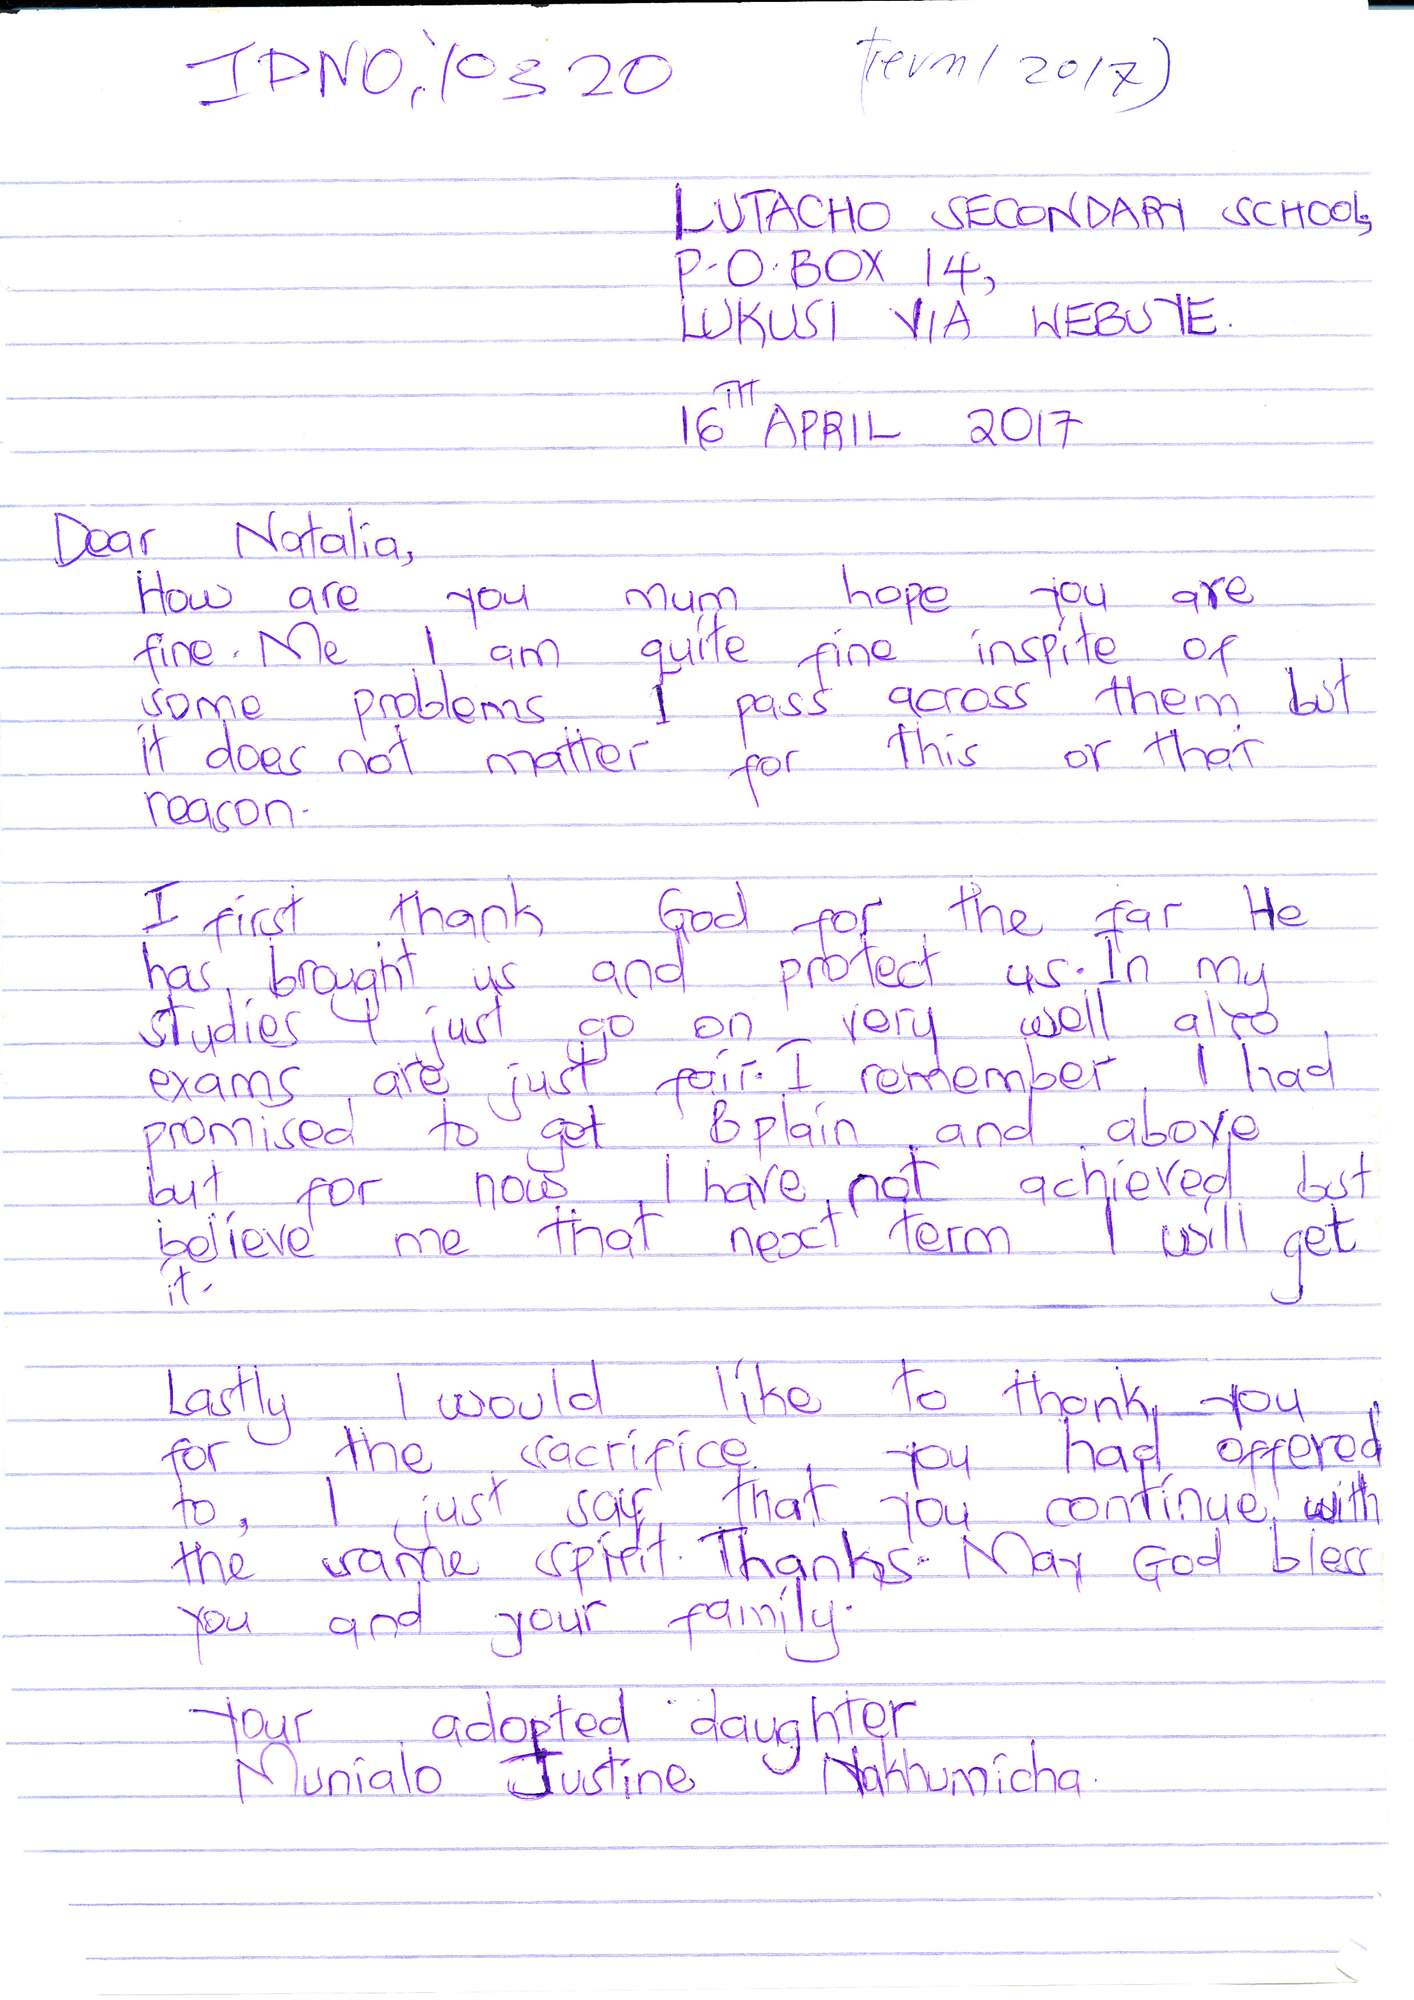 IDNO: 10320
Term 1 2017)
LUTACHO SECONDARY SCHOOL,
P.O.BOX 14,
LUKUSI VIA WEBUYE.
16TH APRIL 2017
Dear Natalia,
How are you mum hope you are
fine. Me I am quite fine inspite of
some problems I pass across them but
it does not matter for this or that
reason.
I first thank God for the far He
has brought us and protect us. In my
studies I just go on very well also
exams are just fair. I remember I had
promised to get B plain and above
but for now I have not achieved but
believe me that next term I will get
it.
Lastly I would like to thank you
for the sacrifice you had offered
to, I just say that you continue with
the same spirit. Thanks. May God bless
you and your family.
Your adopted daughter
Munialo Justine Nakhumicha.